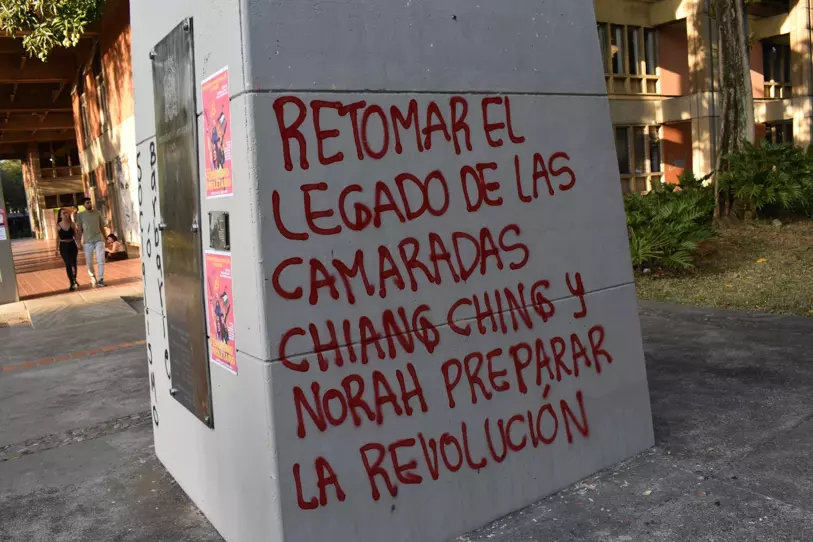 RETOMAR EL
LEGADO DE LAS
CAMARADAS
CHIANG CHING Y
NORAH PREPARAR
LA REVOLUCIÓN